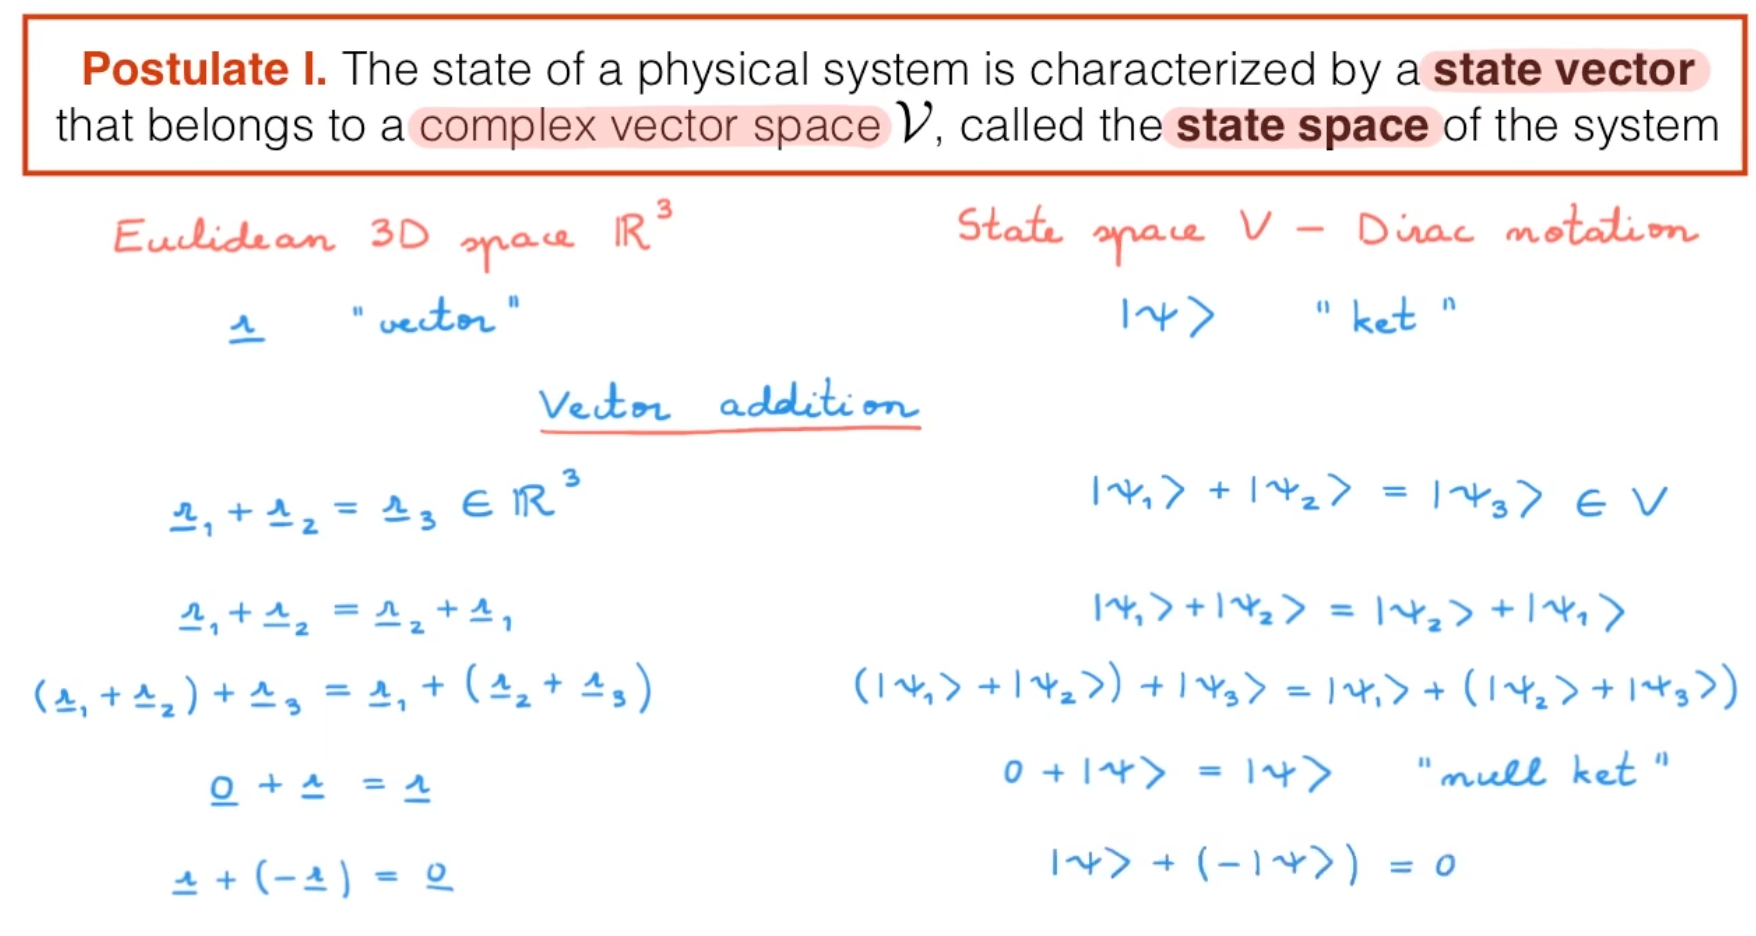 Postulate I. The state of a physical system is characterized by a state vector
that belongs to a complex vector space 𝒱, called the state space of the system
Euclidean 3D space ℝ³
State space V – Dirac notation
r "vector"
|ψ⟩ "ket"
Vector addition
r₁ + r₂ = r₃ ∈ ℝ³
|ψ₁⟩ + |ψ₂⟩ = |ψ₃⟩ ∈ V
r₁ + r₂ = r₂ + r₁
|ψ₁⟩ + |ψ₂⟩ = |ψ₂⟩ + |ψ₁⟩
(r₁ + r₂) + r₃ = r₁ + (r₂ + r₃)
(|ψ₁⟩ + |ψ₂⟩) + |ψ₃⟩ = |ψ₁⟩ + (|ψ₂⟩ + |ψ₃⟩)
0 + r = r
0 + |ψ⟩ = |ψ⟩ "null ket"
r + (-r) = 0
|ψ⟩ + (-|ψ⟩) = 0